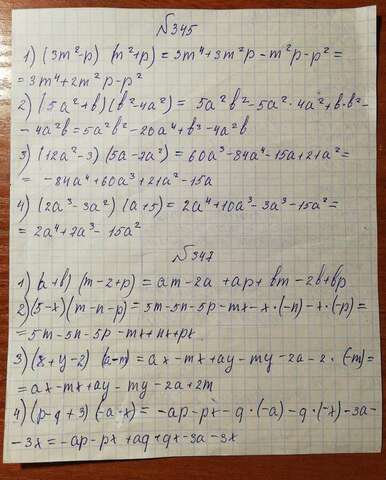 №345
1) (3m²-p) (m²+p) = 3m⁴+3m²p-m²p-p² =
= 3m⁴+2m²p-p²
2) (5a²+b)(b²-4a²) = 5a²b²-5a²·4a²+b·b²-
-4a²b=5a²b²-20a⁴+b³-4a²b
3) (12a²-3) (5a-7a²) = 60a³-84a⁴-15a+21a²=
= -84a⁴+60a³+21a²-15a
4) (2a³-3a²) (a+5) = 2a⁴+10a³-3a³-15a²=
= 2a⁴+7a³-15a²
№347
1) (a+b) (m-2+p) = am-2a+ap+bm-2b+bp
2) (5-x) (m-n-p) = 5m-5n-5p-mx-x·(-n)-x·(-p)=
= 5m-5n-5p-mx+nx+px
3) (x+y-2) (a-m) = ax-mx+ay-my-2a-2·(-m)=
= ax-mx+ay-my-2a+2m
4) (p-q+3) (-a-x) = -ap-px-q·(-a)-q·(-x)-3a-
-3x=-ap-px+aq+qx-3a-3x